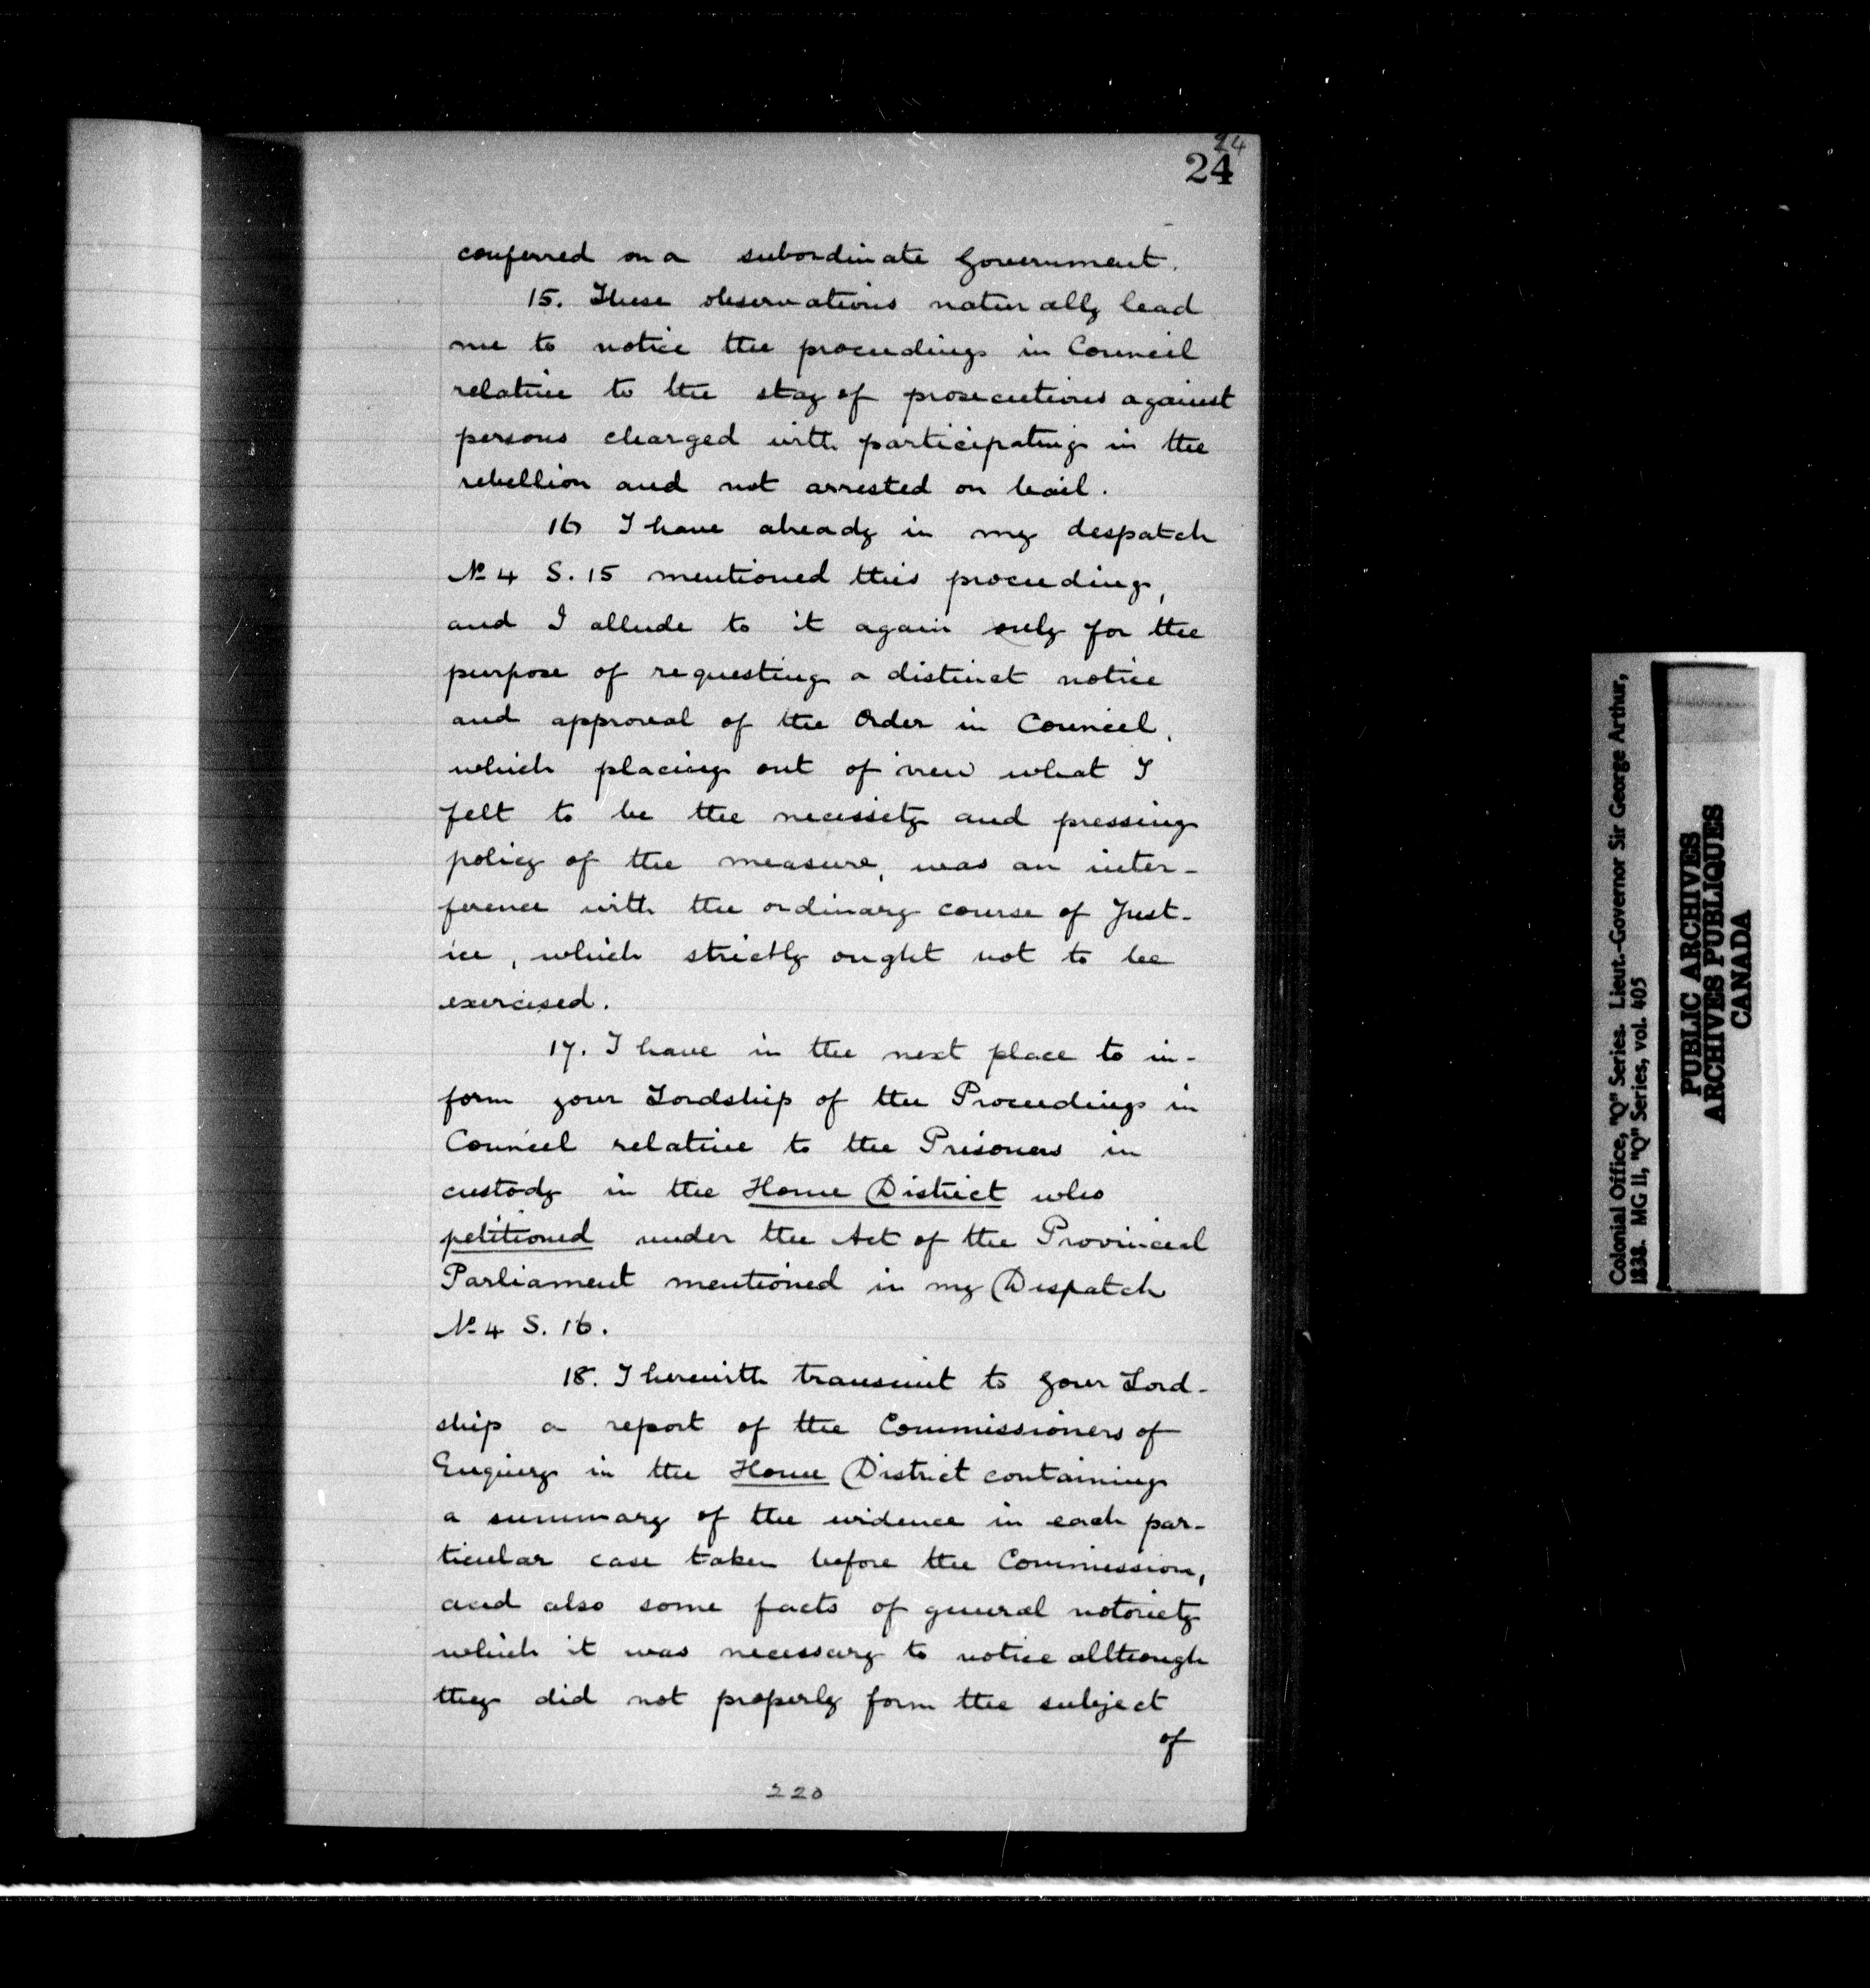 24
24
conferred on a subordinate Government.
15. These observations naturally lead
me to notice the proceedings in Council
relative to the stay of prosecutions against
persons charged with participating in the
rebellion and not arrested on bail.
16 I have already in my despatch
No 4 S. 15 mentioned this proceeding,
and I allude to it again only for the
purpose of requesting a distinct notice
and approval of the Order in Council,
which placing out of view what I
felt to be the necessity and pressing
policy of the measure, was an inter-
ference with the ordinary course of Just-
ice, which strictly ought not to be
exercised.
17. I have in the next place to in-
form your Lordship of the Proceedings in
Council relative to the Prisoners in
custody in the Home District who
petitioned under the Act of the Provincial
Parliament mentioned in my Despatch
No 4 S. 16.
18. I herewith transmit to your Lord-
ship a report of the Commissioners of
Enquiry in the Home District containing
a summary of the evidence in each par-
ticular case taken before the Commission,
and also some facts of general notoriety
which it was necessary to notice although
they did not properly form the subject
of
220
Colonial Office, "Q" Series. Lieut.-Governor Sir George Arthur,
1838. MG 11, "Q" Series, vol. 405
PUBLIC ARCHIVES
ARCHIVES PUBLIQUES
CANADA